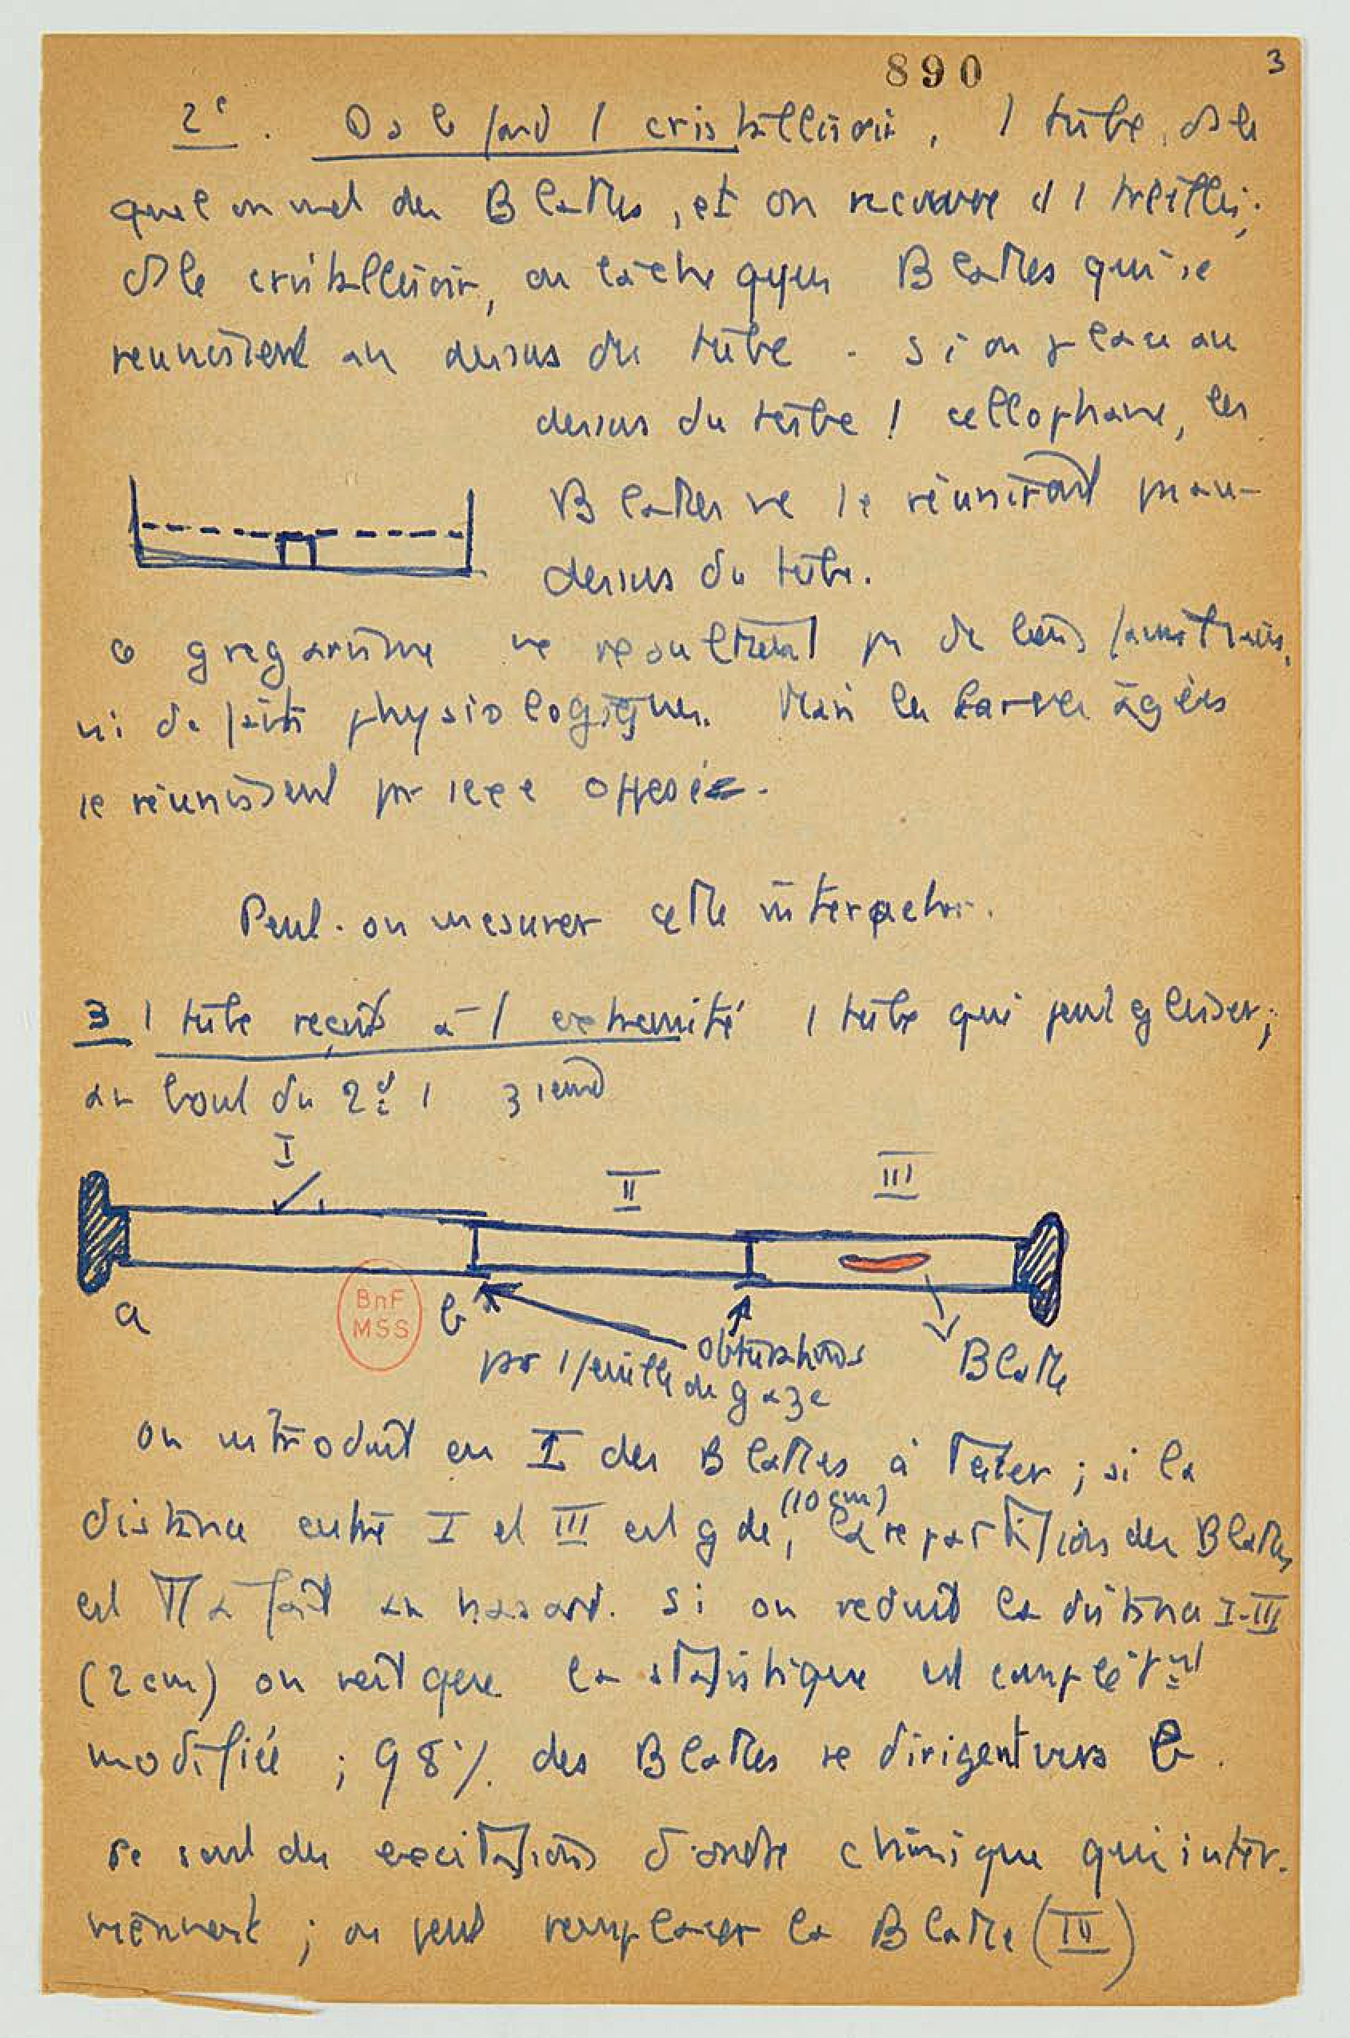 890
3
2°. Ds le fond 1 cristallisoir, 1 tube, ds le
quel on met des Blattes, et on recouvre d'1 treillis;
ds le cristallisoir, on lâche qques Blattes qui se
reunissent au dessus du tube. Si on place au
dessus du tube 1 cellophane, les
Blattes ne se réuniront pas au-
dessus du tube.
Ce gregarisme ne resulterait pas de liens
ni de faits physiologiques. Mais les larves âgées
se réunissent par sexe opposé.
Peut-on mesurer cette interaction.
3 1 tube reçoit à 1 extremité 1 tube qui peut glisser;
au bout du 2d 1 3ieme
I
II
III
a
b
obturations
par 1 feuille de gaze
Blatte
on introduit en I des Blattes à tester; si la
(10 cm)
distance entre I et III est gde, la repartition des Blattes
est Tt a fait au hasard. Si on reduit la distance I-III
(2 cm) on voit que la statistique est complètmt
modifiée; 98% des Blattes se dirigent vers b.
Ce sont des excitations d'ordre chimique qui inter-
viennent; on peut remplacer la Blatte (III)
BnF
MSS